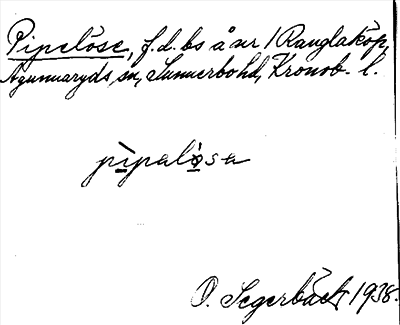 Pipelöse, f.d. bs å nr 1 Ranglaköp,
Agunnaryds sn, Sunnerbo hd, Kronob. l.
pìpalò̱sa
O. Segerbäck 1938.